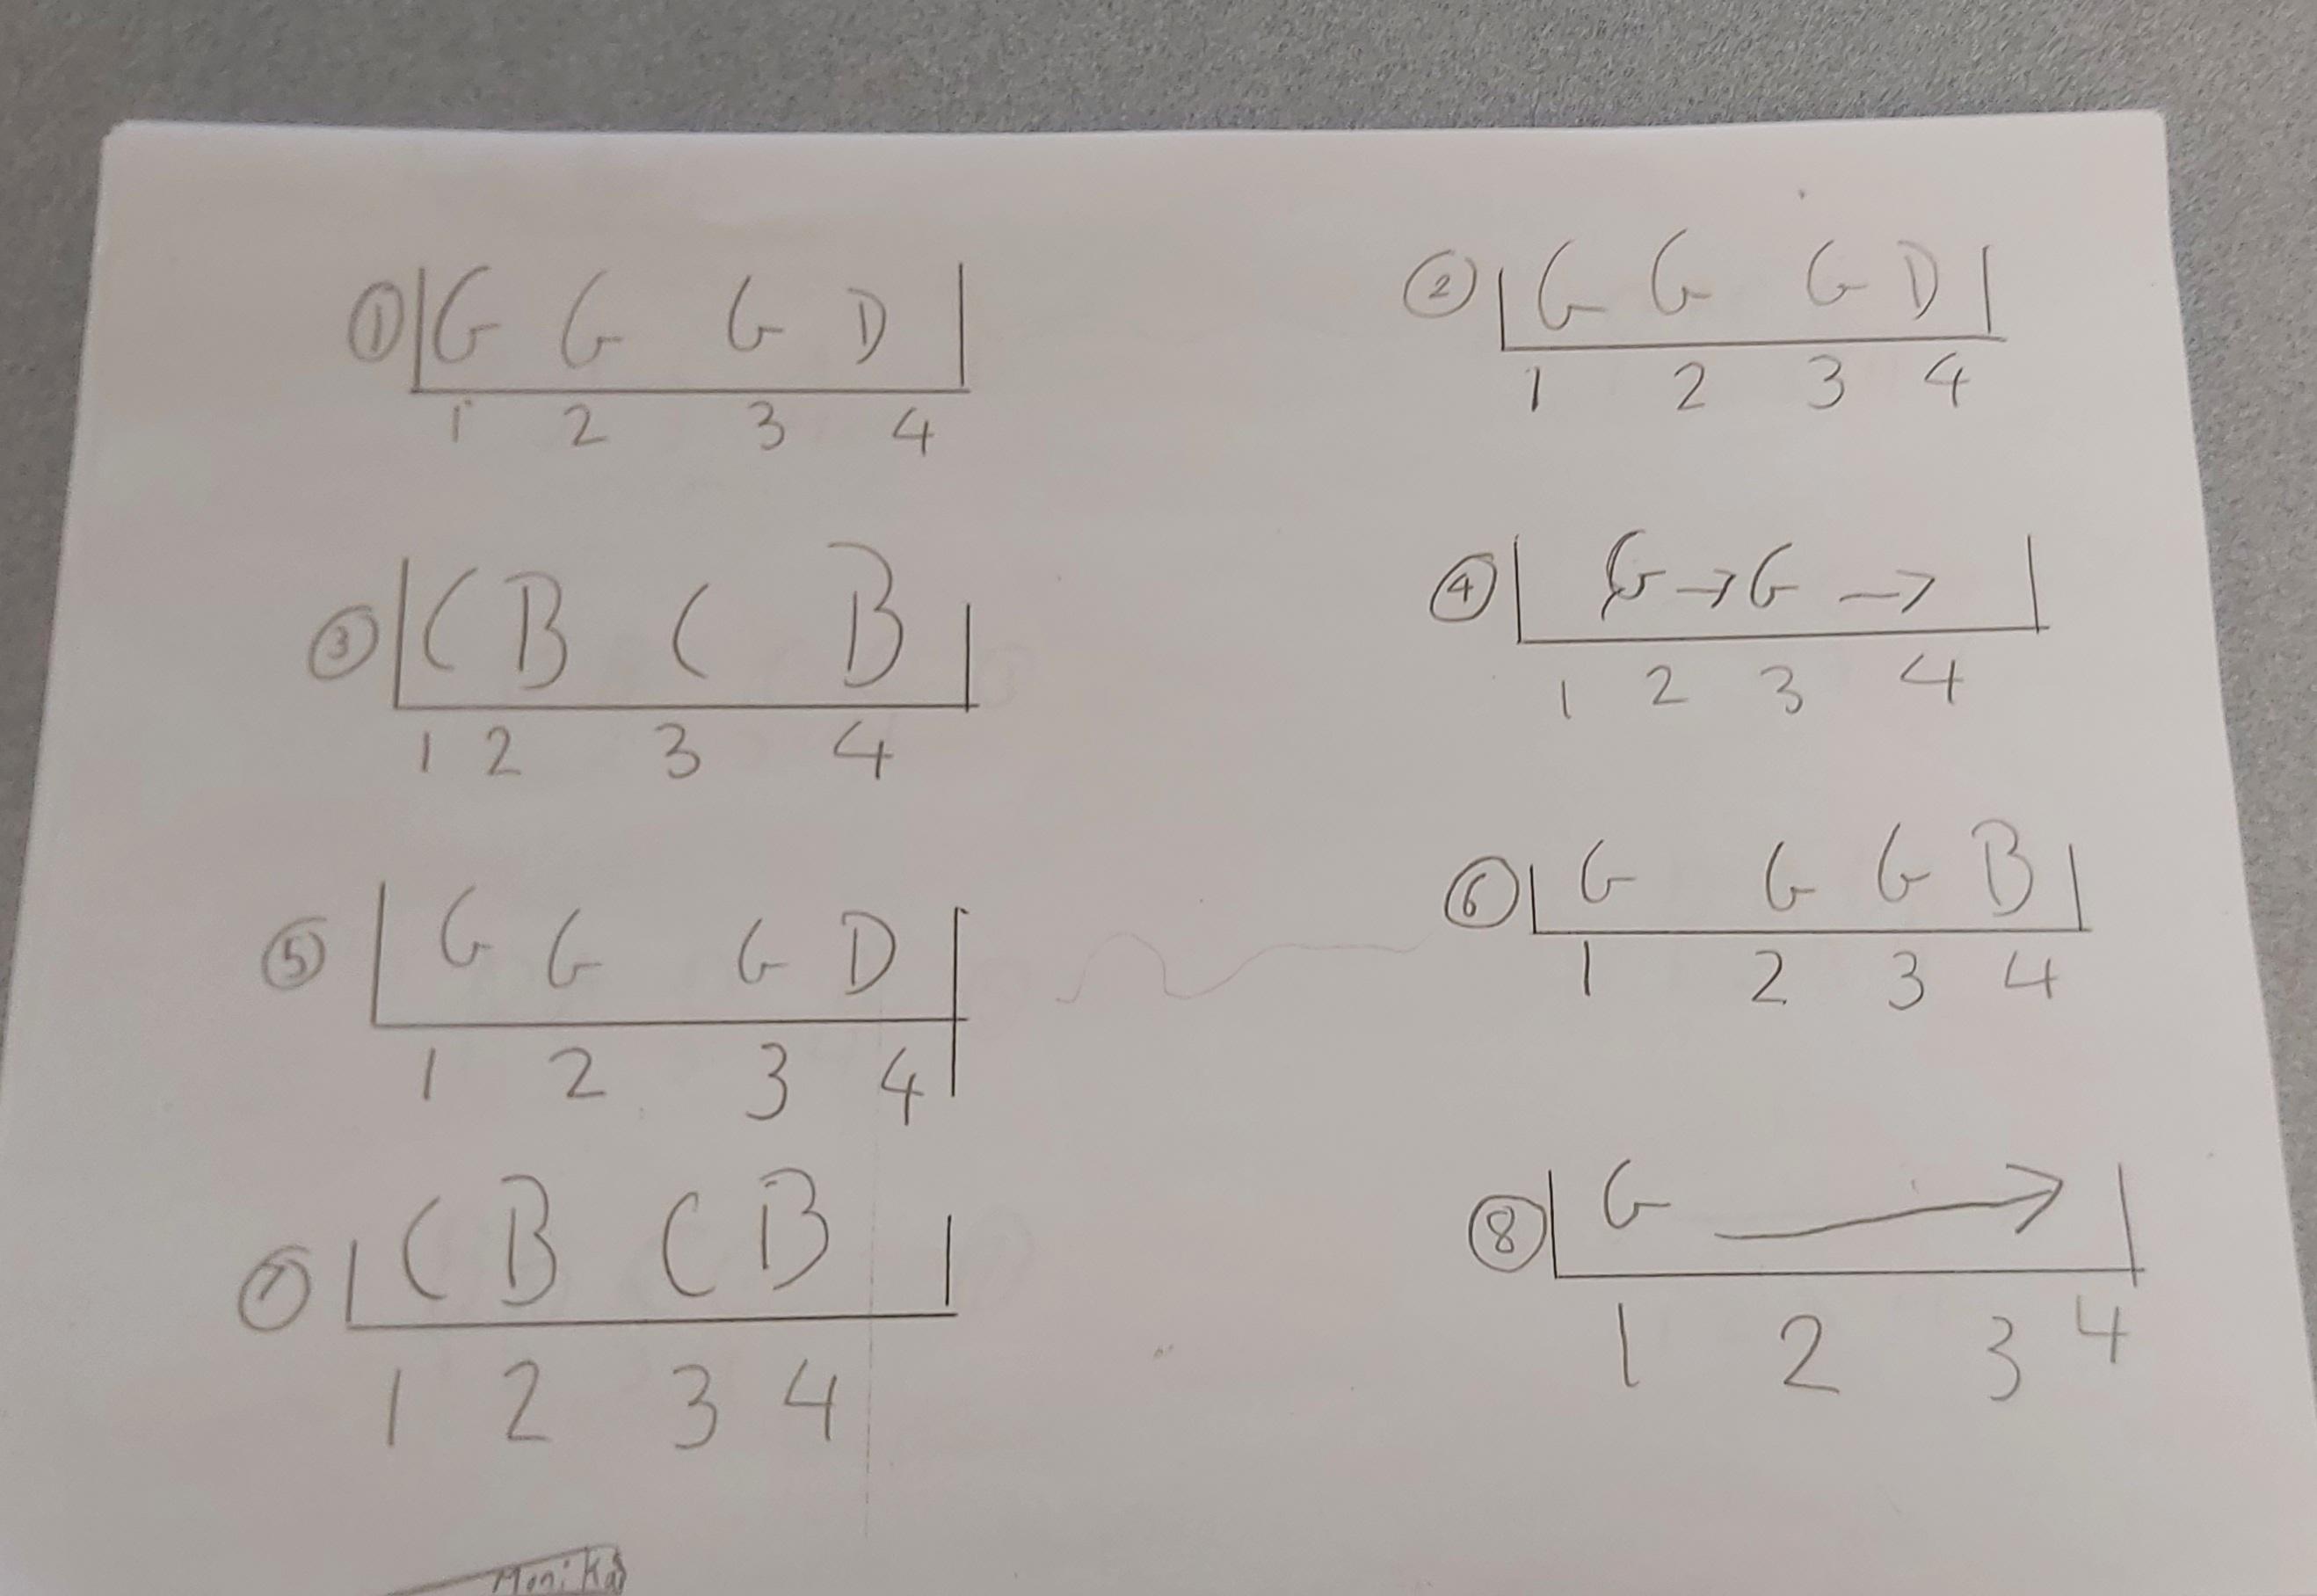 ① G G G D
1 2 3 4
② G G G D
1 2 3 4
③ C B C B
1 2 3 4
④ G → G →
1 2 3 4
⑤ G G G D
1 2 3 4
⑥ G G G B
1 2 3 4
⑦ C B C B
1 2 3 4
⑧ G →
1 2 3 4